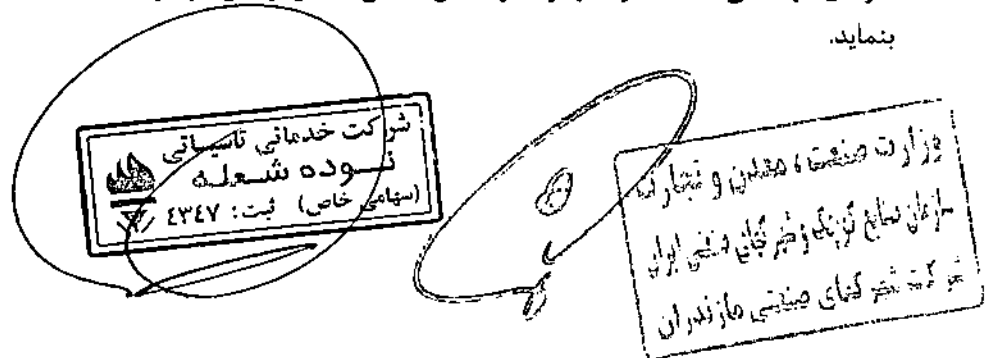 بنماید.
شرکت خدماتی تاسیساتی
نوده شعله
(سهامی خاص) ثبت: ٤٣٤٧
وزارت صنعت، معدن و تجارت
سازمان صنایع کوچک و شهرکهای صنعتی ایران
شرکت شهرکهای صنعتی مازندران